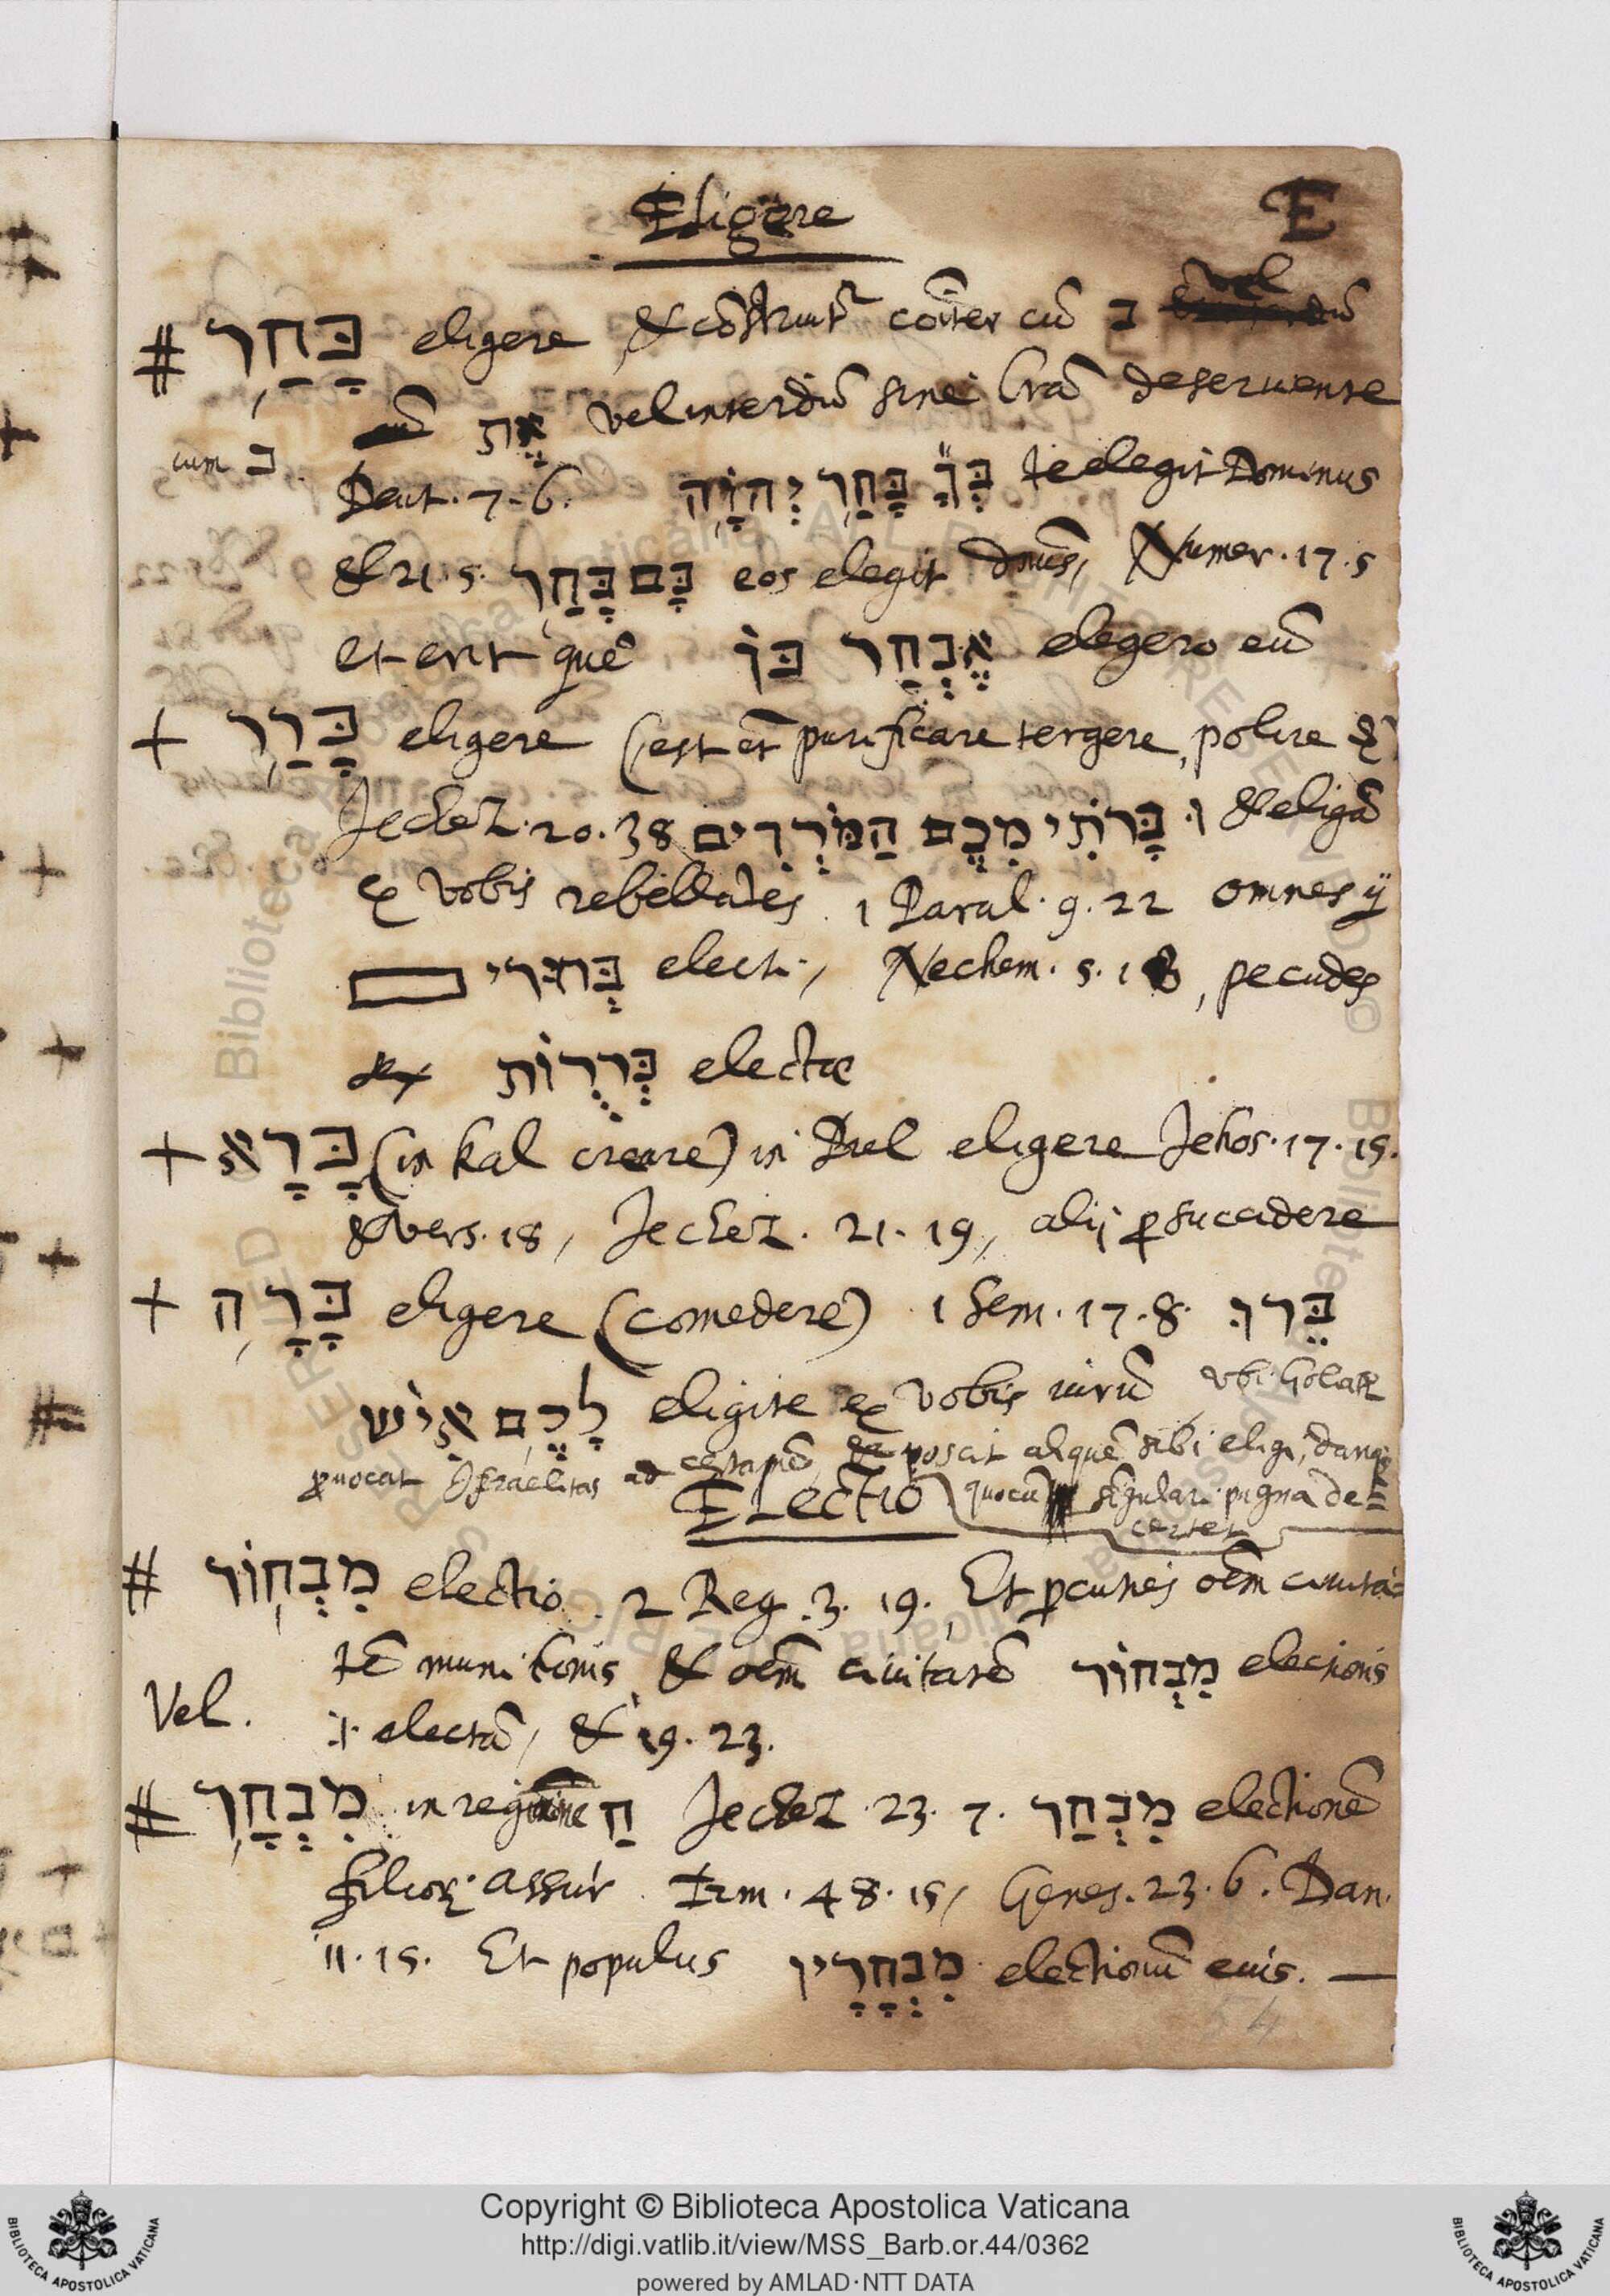 Eligere
E
# בָּחַר eligere, & cōstruitr cōiter cū ב vel
את vel interdū sine Deservente
cum ב
Deut. 7. 6. בְּךָ בָּחַר יְהוָֹה te elegit Dominus
& 21. 5. בָּם בָּחַר eos elegit dnus, Numer. 17. 5
et erit quē אֶבְחַר בּוֹ elegero eū
+ בָּרַר eligere (est et purificare tergere, polire &
Jechez. 20. 38 וּבָּרוֹתִי מִכֶּם הַמֹּרְדִים & eligā
ex vobis rebellātes. 1 Paral. 9. 22 omnes ij
בְּרוּרֵי electi, Nechem. 5. 18, pecudes
בְּרֻרוֹת electæ
+ בָּרָא (in kal creare) in Piel eligere Jehos. 17. 15.
& vers. 18, Jechez. 21. 19, alij p succidere
+ בָּרָה eligere (comedere) 1 Sem. 17. 8. בְּרוּ
לָכֶם אִישׁ eligite ex vobis virū ubi Goliat
provocat Israelitas ad certamē, poscit aliquē sibi eligi,
Electio quocū singulari pugna de=
certet
# מִבְחוֹר electio. 2 Reg. 3. 19. Et pcuties oēm civitā=
tē munitionis & oēm civitatē מִבְחוֹר electionis
Vel. electā, & 19. 23.
# מִבְחָר in regimine חַ Jechez 23. 7. מִבְחַר electionē
filior. assur. Irm. 48. 15, Genes. 23. 6. Dan.
11. 15. Et populus מִבְחָרָיו electionū eius. —
54
Copyright © Biblioteca Apostolica Vaticana
http://digi.vatlib.it/view/MSS_Barb.or.44/0362
powered by AMLAD·NTT DATA
BIBLIOTECA APOSTOLICA VATICANA
BIBLIOTECA APOSTOLICA VATICANA